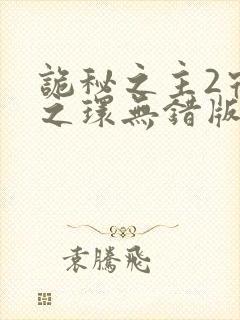 詭秘之主2
之環無錯版
袁騰飛